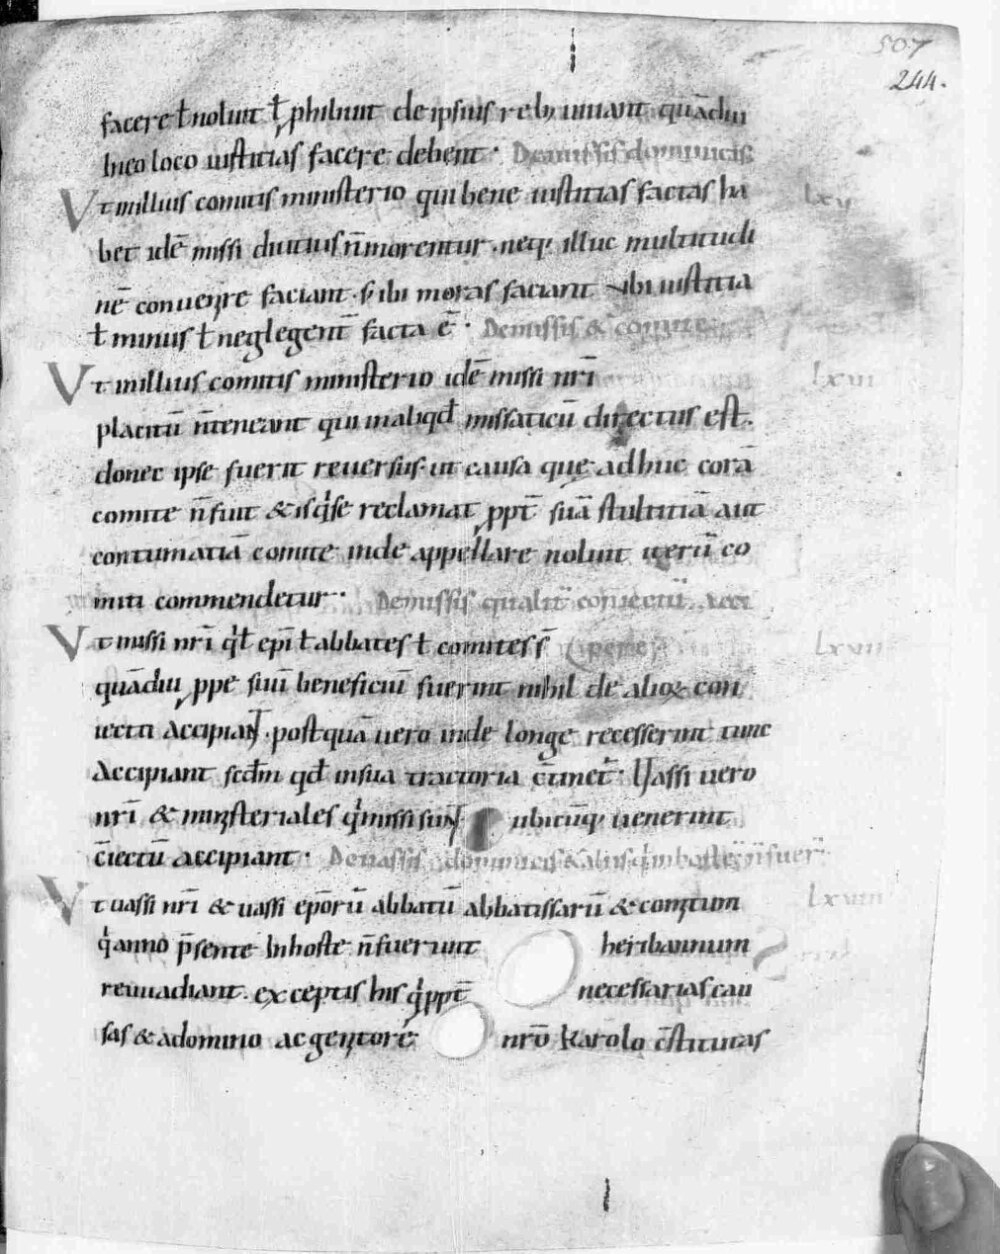 507
244.
facere ł nolunt ł ꝓhibunt de ipsius reb; uiuant quādiu
In eo loco iustitias facere debent · De missis dominicis
Vt in illius comitis ministerio qui bene iustitias factas ha lxv
bet idē missi diutius n̄ morentur. neq; illuc multitudi
nē conuenire faciant. s; ibi moras faciant ubi iustitia
ł minus ł neglegent̄ facta ē · De missis & comite
Vt in illius comitis ministerio idē missi nr̄i lxvi
placitū n̄ teneant qui in aliqđ missaticū directus est.
donec ipse fuerit reuersus. ut causa que adhuc corā
comite n̄ fuit & is q̇ se reclamat ꝓpt̄ suā stultitiā aut
contumatiā comite inde appellare noluit iterū co
miti commendetur · De missis qualit̄ coniectū
Vt missi nr̄i q̇ ł epī ł abbates ł comites s̄ lxvii
quādiu ꝓpe suū beneficiū fuerint nihil de alioꝝ con
iectu accipiant. postquā uero inde longe recesserint tunc
Accipiant scđm qđ in sua tractoria c̄tinet̄ · Vassi uero
nr̄i & ministeriales q̇ missi sunt ubicūq; uenerint
c̄iectū accipiant · De uassis dominicis & aliis q̇ in hoste n̄ fuer̄
Vt uassi nr̄i & uassi epōrū abbatū abbatissarū & comitum lxviii
q̇ anno p̄sente In hoste n̄ fuerunt heribannum
reuuadiant. exceptis his q̇ ꝓpt̄ necessarias cau
sas & a domino ac genitore nrō karolo c̄stitutas